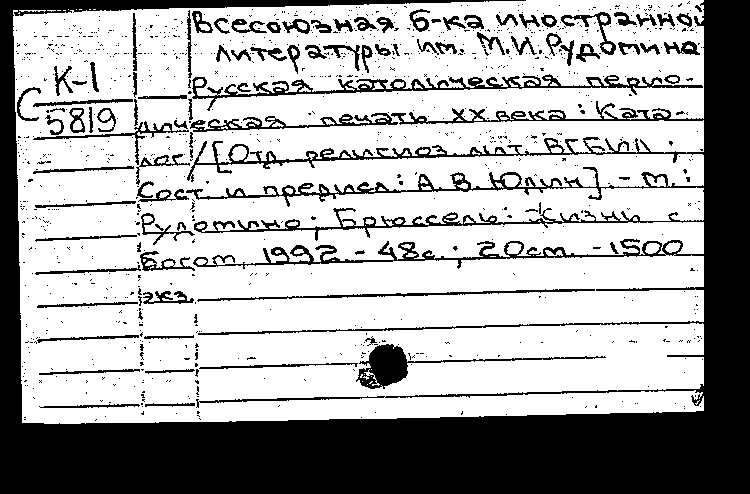 Всесоюзная б-ка иностранной
литературы им. М.И.Рудомино
К-1
С
5819
Русская католическая перио-
дическая печать XX века: Ката-
лог/[Отд. религиоз. лит. ВГБИЛ;
Сост. и предисл.: А. В. Юдин]. - М.:
Рудомино; Брюссель: Жизнь с
Богом, 1992. - 48с.; 20см. - 1500
экз.